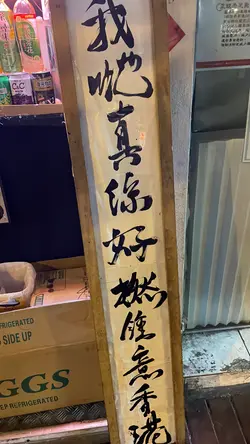 我哋真係好撚鍾意香港
REFRIGERATED
SIDE UP
GGS
EP REFRIGERATED